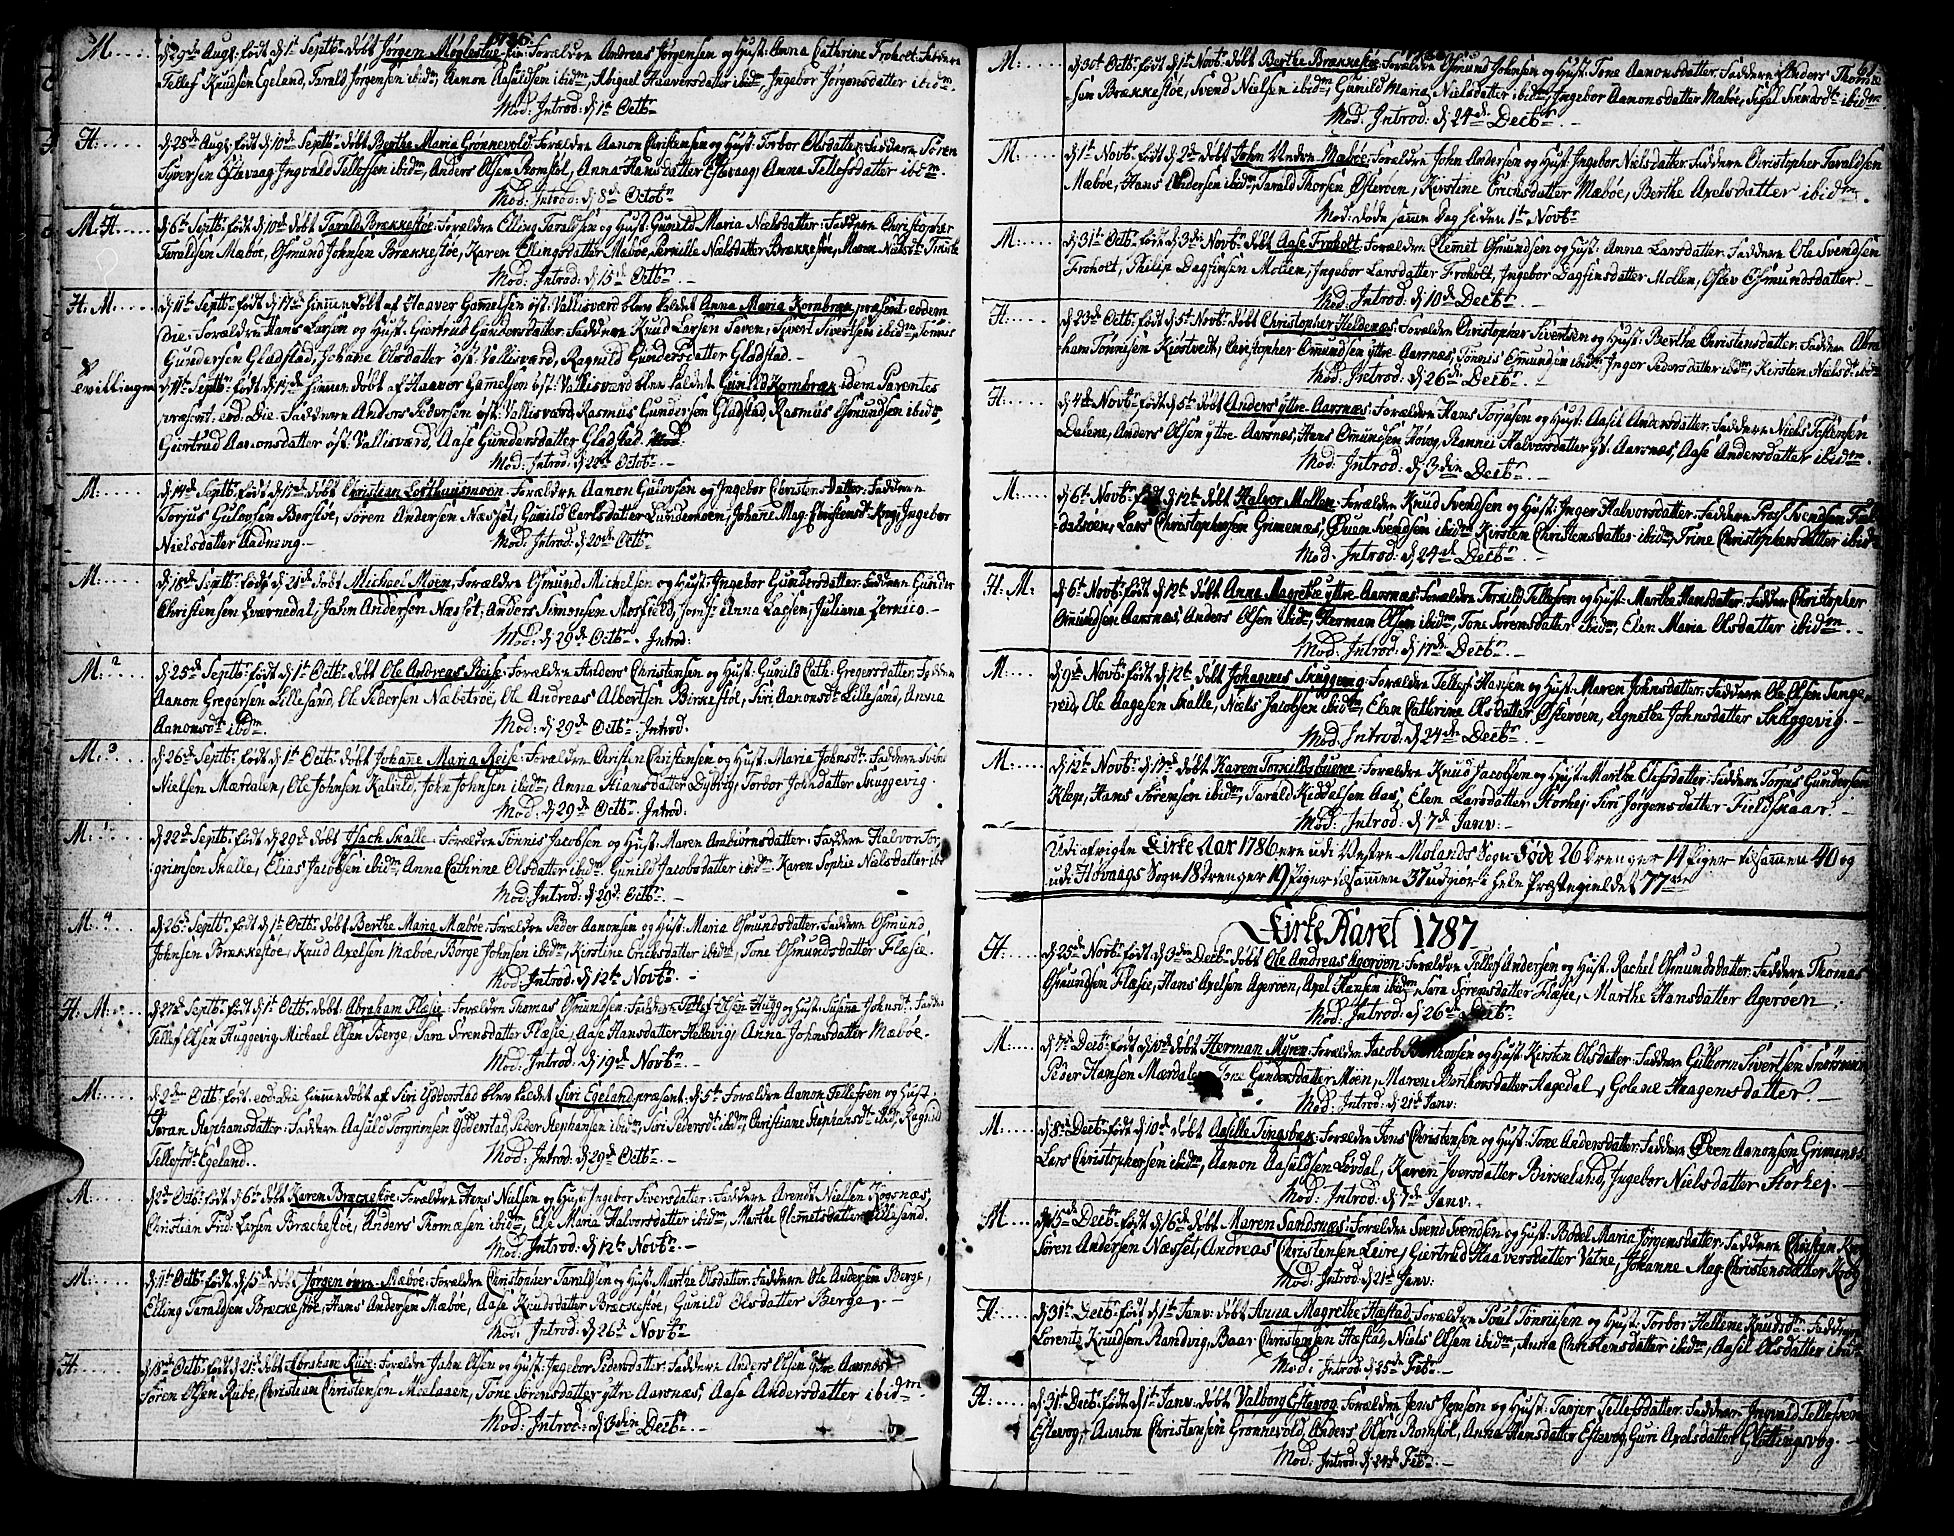 1786
M. d 29de Aug: født d 1t Septbr: døbt Jørgen Møglestue Forældre Andreas Jørgensen og Hust: Anna Cathrine Froholt: Faddere
Tellef Knudsen Egeland, Tarald Jørgensen ibidm, Aanon Aasuldsen ibidm, Abigael Haaversdatter ibidm, Ingebor Jørgensdatter ibidm.
Mod: Introd: d 1t Octbr
H: d 28de Aug: født d 10de Septbr: døbt Berthe Maria Grønnevold: Forældre Aanon Christensen og Hust: Torbor Olsdatter: Faddere Søren
Syversen Estevaag, Ingvald Tellefsen ibidm, Anders Olsen Romsøl, Anna Hansdatter Estevaag, Anna Tellefsdatter ibidm.
Mod: Introd: d 8de Octobr
M. H. d 6te Septbr: født d 10de døbt Tarald Brækkestøe: Forældre Elling Taraldsen og Hust: Gunild Maria Nielsdatter: Faddere Christopher
Taraldsen Mabøe, Osmund Johnsen Brækkestøe, Karen Ellingsdatter Mabøe, Pernille Nielsdatter Brækkestøe, Maren Nielsdt:
Mod: Introd: d 15de Octbr.
H. M. d 11te Septbr: født d 17de hiemmedøbt af Haaver Gamelsen øst: Vallisværd blev kaldet Anna Maria Kornbræk præsent: eodem
Die: Forældre Hans Larsen og Hust: Giertrud Gundersdatter: Faddere Knud Larsen Saven, Sivert Sivertsen ibidm, Tønnis
Gundersen Gladstad, Johane Olsdatter øst: Vallisværd, Ragnild Gundersdatter Gladstad.
Tvillinger d 11te Septbr: født d 17de hiemmedøbt af Haaver Gamelsen øst: Vallisværd blev kaldet Gunild Kornbræk idem Parentes
præsent: eod: Die: Faddere Anders Pedersen øst: Vallisværd, Rasmus Gundersen Gladstad, Rasmus Osmundsen ibidm
Giertrud Aanonsdatter øst: Vallisværd, Aase Gundersdatter Gladstad.
Mod: Introd: d 22de Octobr.
M: d 14de Septbr: født d 17de døbt Christian Lofthuusmoen: Forældre Aanon Gulovsen og Ingebor Christensdatter: Faddere
Torjus Gulovsen Berstøe, Søren Andersen Næsset, Gunild Carlsdatter Lundemoen, Johane Mag: Christensdt: Krog, Ingebor
Nielsdatter Aadnevig. Mod: Introd: d 20de Octbr
M: d 18de Septbr: født d 21de døbt Michael Moen, Forældre Osmund Michelsen og Hust: Ingebor Gundersdatter: Faddere Gunder
Christensen Tværnedal, Jahn Andersen Næsset, Anders Simonsen Mosfield, Jomf: Anna Lassen, Juliana Zernico.
Mod: d 29de Octbr. Introd:
M: 2 d 25de Septbr: født d 1t Octbr: døbt Ole Andreas Reise: Forældre Anders Christensen og Hust: Gunild Cath: Gregersdatter: Faddere
Aanon Gregersen Lillesand, Ole Pedersen Næbetrøe, Ole Andreas Albertsen Birkestøl, Siri Aanonsdt: Lillesand, Anna
Aanonsdt: ibidm. Mod: d 29de Octbr: Introd:
M: 3 d 26de Septbr: født d 1t Octbr: døbt Johane Maria Reise: Forældre Christen Christensen og Hust: Maria Johnsdt: Faddere
Nielsen Mærdalen, Ole Johnsen Kalvild, John Johnsen ibidm, Anna Hansdatter Dybvig, Torbor Johnsdatter Skuggevig.
Mod: d 29de Octbr: Introd:
M: 1 d 22de Septbr: født d 29de døbt Isach Skalle: Forældre Tønnis Jacobsen og Hust: Maren Ambiørnsdatter: Faddere Halvor Tor-
grimsen Skalle, Elias Jacobsen ibidm, Anna Cathrine Olsdatter ibidm, Gunild Jacobsdatter ibidm, Karen Sophie Nielsdatter ibm
Mod: Introd: d 29de Octbr.
M: 4 d 26de Septbr: født d 1t Octbr: døbt Berthe Maria Mæbøe: Forældre Peder Aanonsen og Hust: Maria Osmundsdatter: Faddere Osmund
Johnsen Brækkestøe, Knud Axelsen Mæbøe, Børge Johnsen ibidm, Kirstine Ericksdatter ibidm, Tone Osmundsdatter Flæsie.
Mod: Introd: d 12te Novbr.
H. M: d 27de Septbr: født d 1t Octbr: døbt Abraham Flæsie: Forældre Thomas Osmundsen og Hust: Susana Johnsdt: Faddere
Tellef Olsen Huggevig, Michael Olsen Berge, Sara Sørensdatter Flæsie, Aase Hansdatter Hellevig, Anna Johnsdatter Mæbøe.
Mod: Introd: d 19de Novbr.
M: d 2den Octbr: født eod: Die hiemmedøbt af Siri Ydderstad blev kaldet Siri Egeland præsent: d 5te Forældre Aanon Tellefsen og Hust:
Taran Stephansdatter: Faddere Aasuld Torgrimsen Ydderstad, Peder Stephansen ibidm, Siri Pedersdt: ibidm, Christiane Stephansdt: ibid, Ragnild
Tellefsdt: Egeland. Mod: Introd: d 29de Octbr.
M: d 2den Octbr: født d 6te døbt Karen Brækkestøe: Forældre Hans Nielsen og Hust: Ingebor Siversdatter: Faddere Arendt Nielsen Kogsnæs,
Christian Frid: Larsen Brækkestøe, Anders Thomæsen ibidm, Else Maria Halvorsdatter ibidm, Marthe Clemetsdatter Lillesand.
Mod: Introd: d 12te Novbr.
M: d 11te Octbr: født d 15de døbt Jørgen Mæbøe: Forældre Christopher Taraldsen og Hust: Marthe Olsdatter: Faddere Ole Andersen Berge,
Elling Taraldsen Brækkestøe, Hans Andersen Mæbøe, Aase Knudsdatter Brækkestøe, Gunild Olsdatter Berge.
Mod: Introd: d 26de Novbr
H. d 18de Octbr: født d 21de døbt Abraham Ribe: Forældre Jahn Olsen og Hust: Ingebor Pedersdatter: Faddere Anders Olsen yttre Aarsnæs,
Søren Olsen Ribe, Christian Christensen Meelagen, Tone Sørensdatter yttre Aarsnæs, Aase Andersdatter ibidm
Mod: Introd: d 3die Decbr.
M: d 30t Octbr: født d 1t Novbr: døbt Berthe Brækkestøe: Forældre Osmund Johnsen og Hust: Tone Aanonsdatter: Faddere Anders Thomæ-
sen Brækkestøe, Svend Nielsen ibidm, Gunild Maria Nielsdatter ibidm, Ingebor Aanonsdatter Mabøe, Sisel Svendsdt: ibidm
Mod: Introd: d 24de Decbr.
M: d 1t Novbr: født d 2de døbt John Mabøe: Forældre John Andersen og Hust: Ingebor Nielsdatter: Faddere Christopher Taraldsen
Mæbøe, Hans Andersen ibidm, Tarald Thorsen Østerøen, Kirstine Erichsdatter Mæbøe, Berthe Axelsdatter ibidm.
Mod: døde samme Dag hiden 1t Novbr
M: d 31t Octbr: født d 3de Novbr: døbt Aase Froholt: Forældre Clemet Osmundsen og Hust: Anna Larsdatter: Faddere Ole Svendsen
Froholt, Philip Dagfinsen Mollen, Ingebor Larsdatter Froholt, Ingebor Dagfinsdatter Mollen, Oslev Osmundsdatter.
Mod: Introd: d 10de Decbr.
H: d 23de Octbr: født d 5te Novbr: døbt Christopher Heldenæs: Forældre Christopher Sivertsen og Hust: Berthe Christensdatter: Faddere Abra-
ham Tønnesen Kiøstvedt, Christopher Omundsen yttre Aarsnæs, Tønnis Omundsen ibidm, Inger Pedersdatter ibidm, Kirsten Nielsdt: ibidm
Mod: Introd: d 26de Decbr.
H. d 4de Novbr: født d 5te døbt Anders yttre Aarsnæs: Forældre Hans Torjusen og Hust: Aasel Andersdatter: Faddere Niels Tellefsen
Dalene, Anders Olsen yttre Aarsnæs, Hans Omundsen Høvog, Rannei Halvorsdatter yt: Aarsnæs, Aase Andersdatter ibidm.
Mod: Introd: d 3die Decbr.
M: d 6te Novbr: født d 12te døbt Halvor Mollen: Forældre Knud Svendsen og Hust: Inger Halvorsdatter: Faddere Svendsen
dalsøen, Lars Christophersen Grimenæs, Øven Svendsen ibidm, Kirsten Christensdatter ibidm, Trine Christophersdatter ibidm
Mod: Introd: d 24de Decbr.
H. M: d 6te Novbr: født d 12te døbt Anne Magrethe yttre Aarsnæs: Forældre Torkild Tellefsen og Hust: Marthe Hansdatter: Faddere Christopher
Omundsen Aarsnæs, Anders Olsen ibidm, Herman Olsen ibidm, Tone Sørensdatter ibidm, Elen Maria Olsdatter ibidm.
Mod: Introd: d 17de Decbr.
M: d 9de Novbr: født d 12te døbt Johannes Skuggevig: Forældre Tellef Hansen og Hust: Maren Johnsdatter: Faddere Ole Olsen Sange-
reid, Ole Aagesen Skalle, Niels Jacobsen ibidm, Elen Cathrine Olsdatter Østerøen, Agnethe Johnsdatter Skuggevig.
Mod: Introd: d 24de Decbr.
M: d 12te Novbr: født d 17de døbt Karen Torkildsbuene: Forældre Knud Jacobsen og Hust: Marthe Elefsdatter: Faddere Torjus Gundersen
Klep, Hans Sørensen ibidm, Tarald Kiddelsen Aas, Elen Larsdatter Storhej, Siri Jørgensdatter Fieldskaar
Mod: Introd: d 7de Janv:
Udi afvigte Kirke Aar 1786 ere udi Vestre-Molands Sogn Føde 26 Drenger 14 Piger tilsammen 40 og
udi Høvaags Sogn 18 Drenger 19 Piger tilsammen 37 udgiør i hele Præstegieldet 77
Kirke Aaret 1787
H. d 25de Novbr: født d 3die Decbr: døbt Ole Andreas Agerøen: Forældre Tellef Andersen og Hust: Rachel Osmundsdatter: Faddere Thomas
Osmundsen Flæsie, Hans Axelsen Agerøen, Axel Hansen ibidm, Sara Sørensdatter Flæsie, Marthe Hansdatter Agerøen.
Mod: Introd: d 26de Decbr.
M d 7de Decbr: født d 10de døbt Herman Myren: Forældre Jacob og Hust: Kirsten Olsdatter: Faddere Gutborm Sivertsen
Peder Hansen Mærdalen, Tone Gundersdatter Moen, Maren Berthorsdatter Aagedal, Golene Haagensdatter
Mod: Introd: d 21de Janv:
M. d 8de Decbr: født d 10de døbt Aasille Tingsbæk: Forældre Jens Christensen og Hust: Tone Andersdatter: Faddere Øven Aanonsen Grimenæs
Lars Christophersen ibidm, Aanon Aasuldsen Løvdal, Karen Iversdatter Birkeland, Ingebor Nielsdatter Storhej.
Mod: Introd: d 7de Janv:
M d 15de Decbr: født d 16de døbt Maren Sandsnæs: Forældre Svend Svendsen og Hust: Bodel Maria Jørgensdatter: Faddere Christen
Søren Andersen Næsset, Andreas Christensen Leire, Giertrud Haaversdatter Vatne, Johanne Mag: Christensdatter Krog
Mod: Introd: d 21de Janv:
H. d 31t Decbr: født d 1t Janv: døbt Anna Magrethe Hæstad: Forældre Poul Tønnisen og Hust: Torbor Hellene Knudsdt: Faddere
Lorentz Knudsen Randvig, Baar Christensen Hæstad, Niels Olsen ibidm, Anna Christensdatter ibidm, Aasel Olsdatter ibidm
Mod: Introd: d 25de Febr:
H. d 31t Decbr: født d 1t Janv: døbt Valborg Estevog: Forældre Jens Jensen og Hust: Tarjer Tellefsdatter: Faddere Ingvald Tellefsen
Estevog, Aanon Christensen Grønnevold, Anders Olsen Romsøl, Anna Hansdatter Estevog, Guri Axelsdatter Glattingsvog.
Mod: Introd: d 24de Febr.